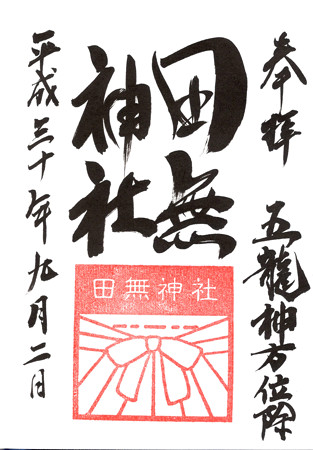 奉拝
五龍神方位除
田無
神社
田無神社
平成三十年九月二日